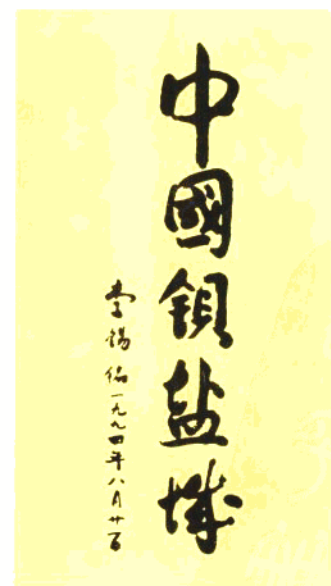 中國鋇盐城
李锡铭一九九四年八月廿一日